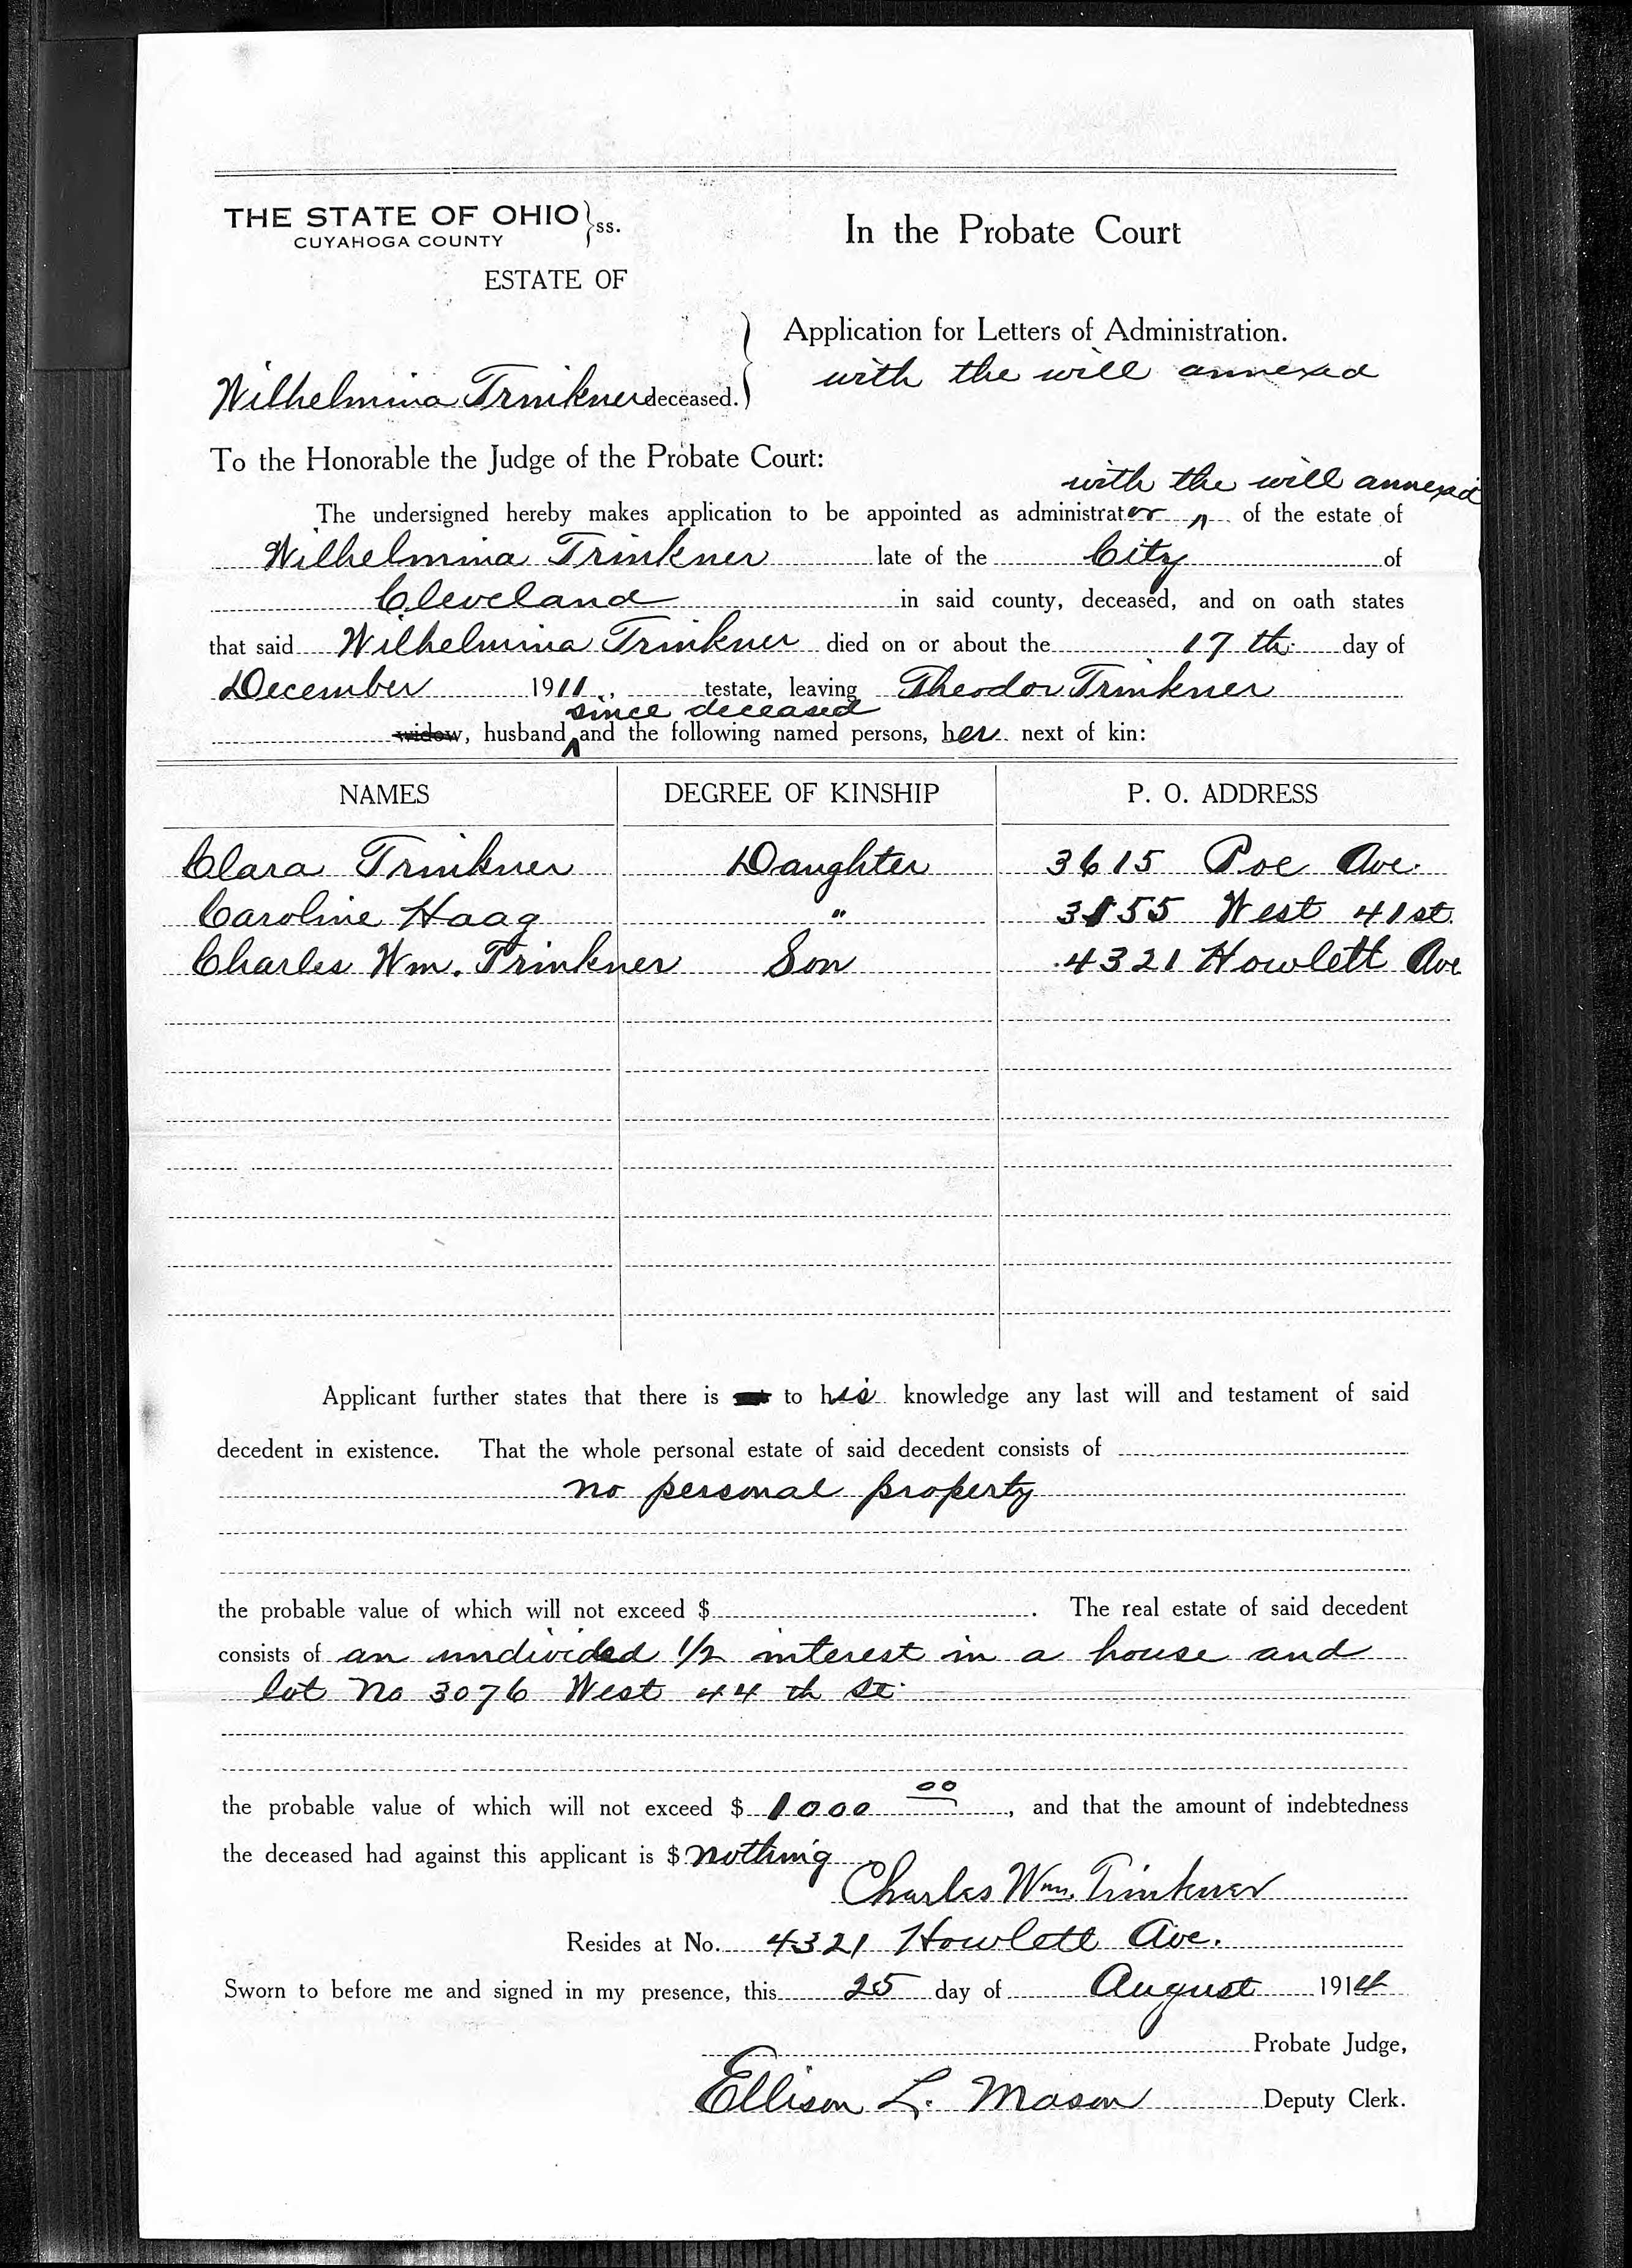 THE STATE OF OHIO } ss.
CUYAHOGA COUNTY
In the Probate Court
ESTATE OF
Application for Letters of Administration.
with the will annexed
Wilhelmina Trinkner deceased.
To the Honorable the Judge of the Probate Court:
with the will annexed
The undersigned hereby makes application to be appointed as administrator ^ of the estate of
Wilhelmina Trinkner late of the City of
Cleveland in said county, deceased, and on oath states
that said Wilhelmina Trinkner died on or about the 17th day of
December 1911, testate, leaving Theodor Trinkner
since deceased
widow, husband ^ and the following named persons, her next of kin:
NAMES DEGREE OF KINSHIP P. O. ADDRESS
Clara Trinkner Daughter 3615 Poe Ave.
Caroline Haag " 3155 West 41 st.
Charles Wm. Trinkner Son 4321 Howlett Ave
Applicant further states that there is to his knowledge any last will and testament of said
decedent in existence. That the whole personal estate of said decedent consists of
no personal property
the probable value of which will not exceed $ . The real estate of said decedent
consists of an undivided 1/2 interest in a house and
lot No 3076 West 44 th St.
the probable value of which will not exceed $ 1000 00, and that the amount of indebtedness
the deceased had against this applicant is $ nothing
Charles Wm. Trinkner
Resides at No. 4321 Howlett Ave.
Sworn to before me and signed in my presence, this 25 day of August 1914
Probate Judge,
Ellison L. Mason Deputy Clerk.